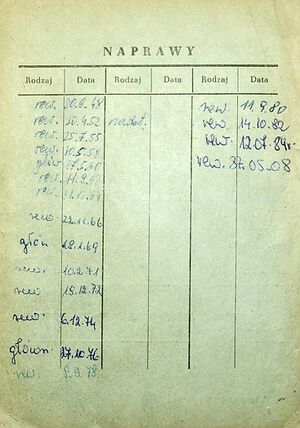 NAPRAWY
Rodzaj Data Rodzaj Data Rodzaj Data
rew. 20.6.48
rew. 10.4.52
rew. 25.7.55
rew. 10.5.58
głów 27.5.60
rew.
rew.
rew. 22.11.66
głów 18.1.69
rew 10.2.71
rew 18.12.72
rew. 6.12.74
główn 27.10.76
rew. 8.9.78
rew. 11.9.80
rew. 14.10.82
rew. 12.07.84r.
rew. 87.05.08